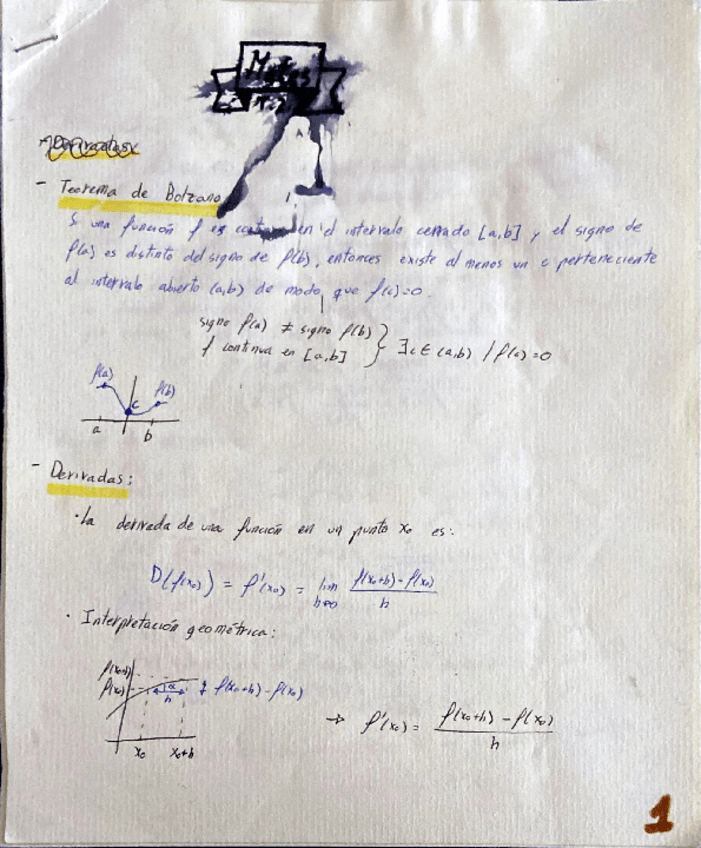 Mates
- Teorema de Bolzano
Si una función f es continua en el intervalo cerrado [a,b] y el signo de
f(a) es distinto del signo de f(b), entonces existe al menos un c perteneciente
al intervalo abierto (a,b) de modo que f(c)=0.
signo f(a) ≠ signo f(b)
f continua en [a,b] } ∃c ∈ (a,b) / f(c)=0
f(a) f(b)
c
a b
- Derivadas:
· La derivada de una función en un punto x₀ es:
D(f(x₀)) = f'(x₀) = lim h→0 (f(x₀+h) - f(x₀))/h
· Interpretación geométrica:
f(x₀+h)
f(x₀) α f(x₀+h) - f(x₀)
h
→ f'(x₀) = (f(x₀+h) - f(x₀))/h
x₀ x₀+h
1